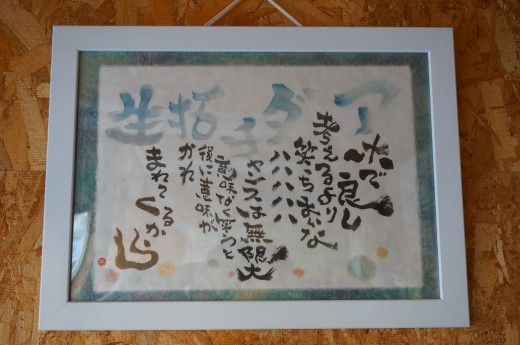 アホで良し
考えるより
笑っちまいな
ダハハハハハ
チャンスは無限大
意味なく笑うと
後に意味が
活かれ
生まれてくるから